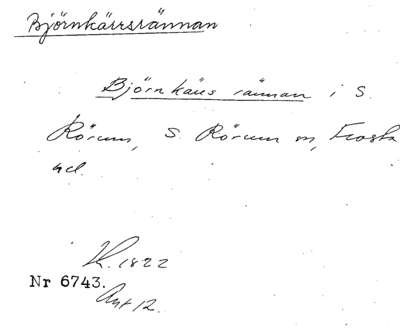 Björnkärrsrännan
Björnkäus rännan i S.
Rörum, S. Rörum sn, Frosta
hd.
Lk. 1822
Nr 6743.
Akt 12.